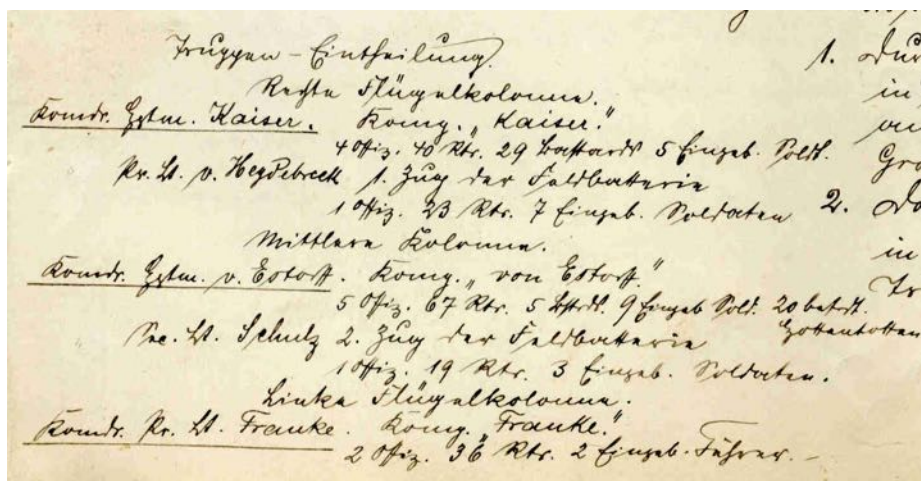 Truppen-Eintheilung.
Rechte Flügelkolonne.
Komdr. Hptm. Kaiser. Komp. „Kaiser."
4 Offiz. 40 Rtr. 29 Bastards 5 Eingeb. Soldt.
Pr. Lt. v. Heydebreck 1. Zug der Feldbatterie
1 Offiz. 23 Rtr. 7 Eingeb. Soldaten
Mittlere Kolonne.
Komdr. Hptm. v. Estorff. Komp. „von Estorff."
5 Offiz. 67 Rtr. 5 Bstrds. 9 Eingeb Sold. 20
Hottentotten
Sec. Lt. Schulz 2. Zug der Feldbatterie
1 Offiz. 19 Rtr. 3 Eingeb. Soldaten.
Linke Flügelkolonne.
Komdr. Pr. Lt. Franke. Komp. „Franke."
2 Offiz. 36 Rtr. 2 Eingeb. Führer.
1.
in
2.
in